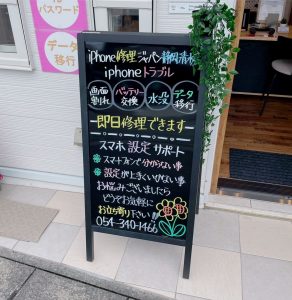 パスワード
データ
移行
iPhone修理ジャパン静岡清水
iphoneトラブル
画面割れ
バッテリー交換
水没
データ移行
即日修理できます
スマホ 設定 サポート
スマートフォンで分からない事
設定が上手くいかない事
お悩みございましたら
どうぞお気軽に
お立ち寄り下さい!!!
054-340-1466